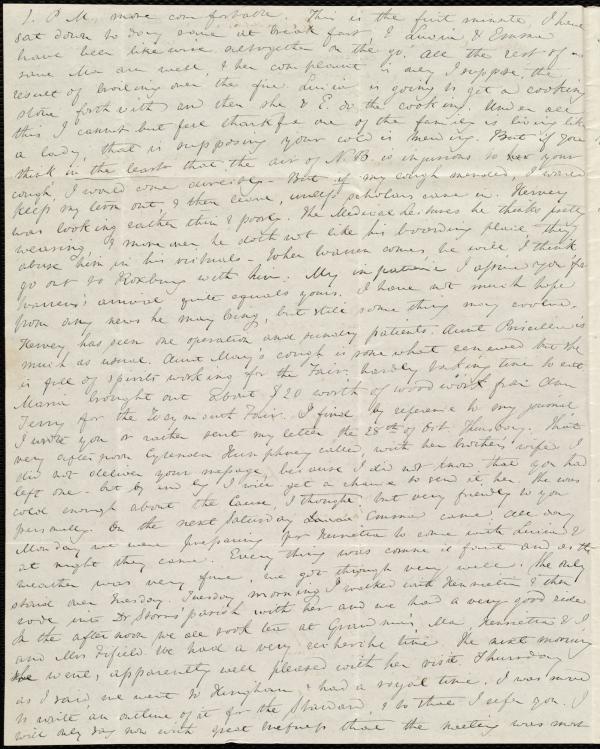 1. P.M. more comfortable. This is the first minute, I have
sat down to day, save at breakfast, Lucia & Emma
have been likewise altogether on the go. All the rest of us
save Ma are well, & her complaint is only I suppose, the
result of broiling over the fire. Louisa is going to get a cooking
stove forthwith and then she & E. do the cooking. Under all
this I cannot but feel thankful one of the family is living like
a lady, that is supposing your cold is mending. But if you
think in the least that the air of N.B. is injurious to your
cough, I would come directly - But if my cough mended, I would
keep my term out & then leave, unless scholars came in. Hervey
was looking rather thin & poorly. The Medical lectures he thinks pretty
wearing, & more over he doth not like his boarding place, they
abuse him in his victuals - When Warren comes, he will I think
go out to Roxbury with him. My impatience I assure you for
Warren's arrival quite equals yours. I have not much hope
from any news he may bring, but still some thing may evolve.
Hervey has seen one operation and sundry patients. Aunt Priscilla is
much as usual. Aunt Mary's cough is some what renewed but she
is full of spirits working for the Fair, hardly taking time to eat.
Maria brought out about $20 worth of wood work from Ann
Terry for the Weymouth Fair. I find by reference to my journal
I wrote you or rather sent my letter the 28th of Oct. Thursday. That
very afternoon Humphrey called, with her brother's wife. I
did not deliver your message, because I did not know, that you had
left one - but by and by I will get a chance to send it, her. She was
cold enough about the Cause, I thought, but very friendly to you
personally. On the next Saturday Emma came. All day
Monday we were preparing for Henrietta to come with Louisa &
at night they came. Every thing was comme il faut and as the
weather was very fine, we got through very well. She only
staid over Tuesday. Tuesday morning I walked with Henrietta & then
rode into Dr Storrs' parish with her and we had a very good ride
In the afternoon we all took tea at Grandma's, Ma, Henrietta & I,
and Mrs Fifield. We had a very time. The next morning
she went, apparently well pleased with her visit. Thursday
as I said, we went to Hingham & had a royal time. I was moved
to write an outline of it for the Standard, & to that I refer you. I
will only say now with great briefness that the meeting was most